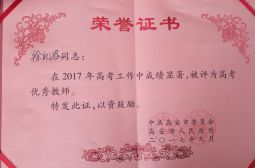 荣誉证书
同志：
在2017年高考工作中成绩显著，被评为高考
优秀教师。
特发此证，以资鼓励。
中共高安市委员会
高安市人民政府
二〇一七年九月